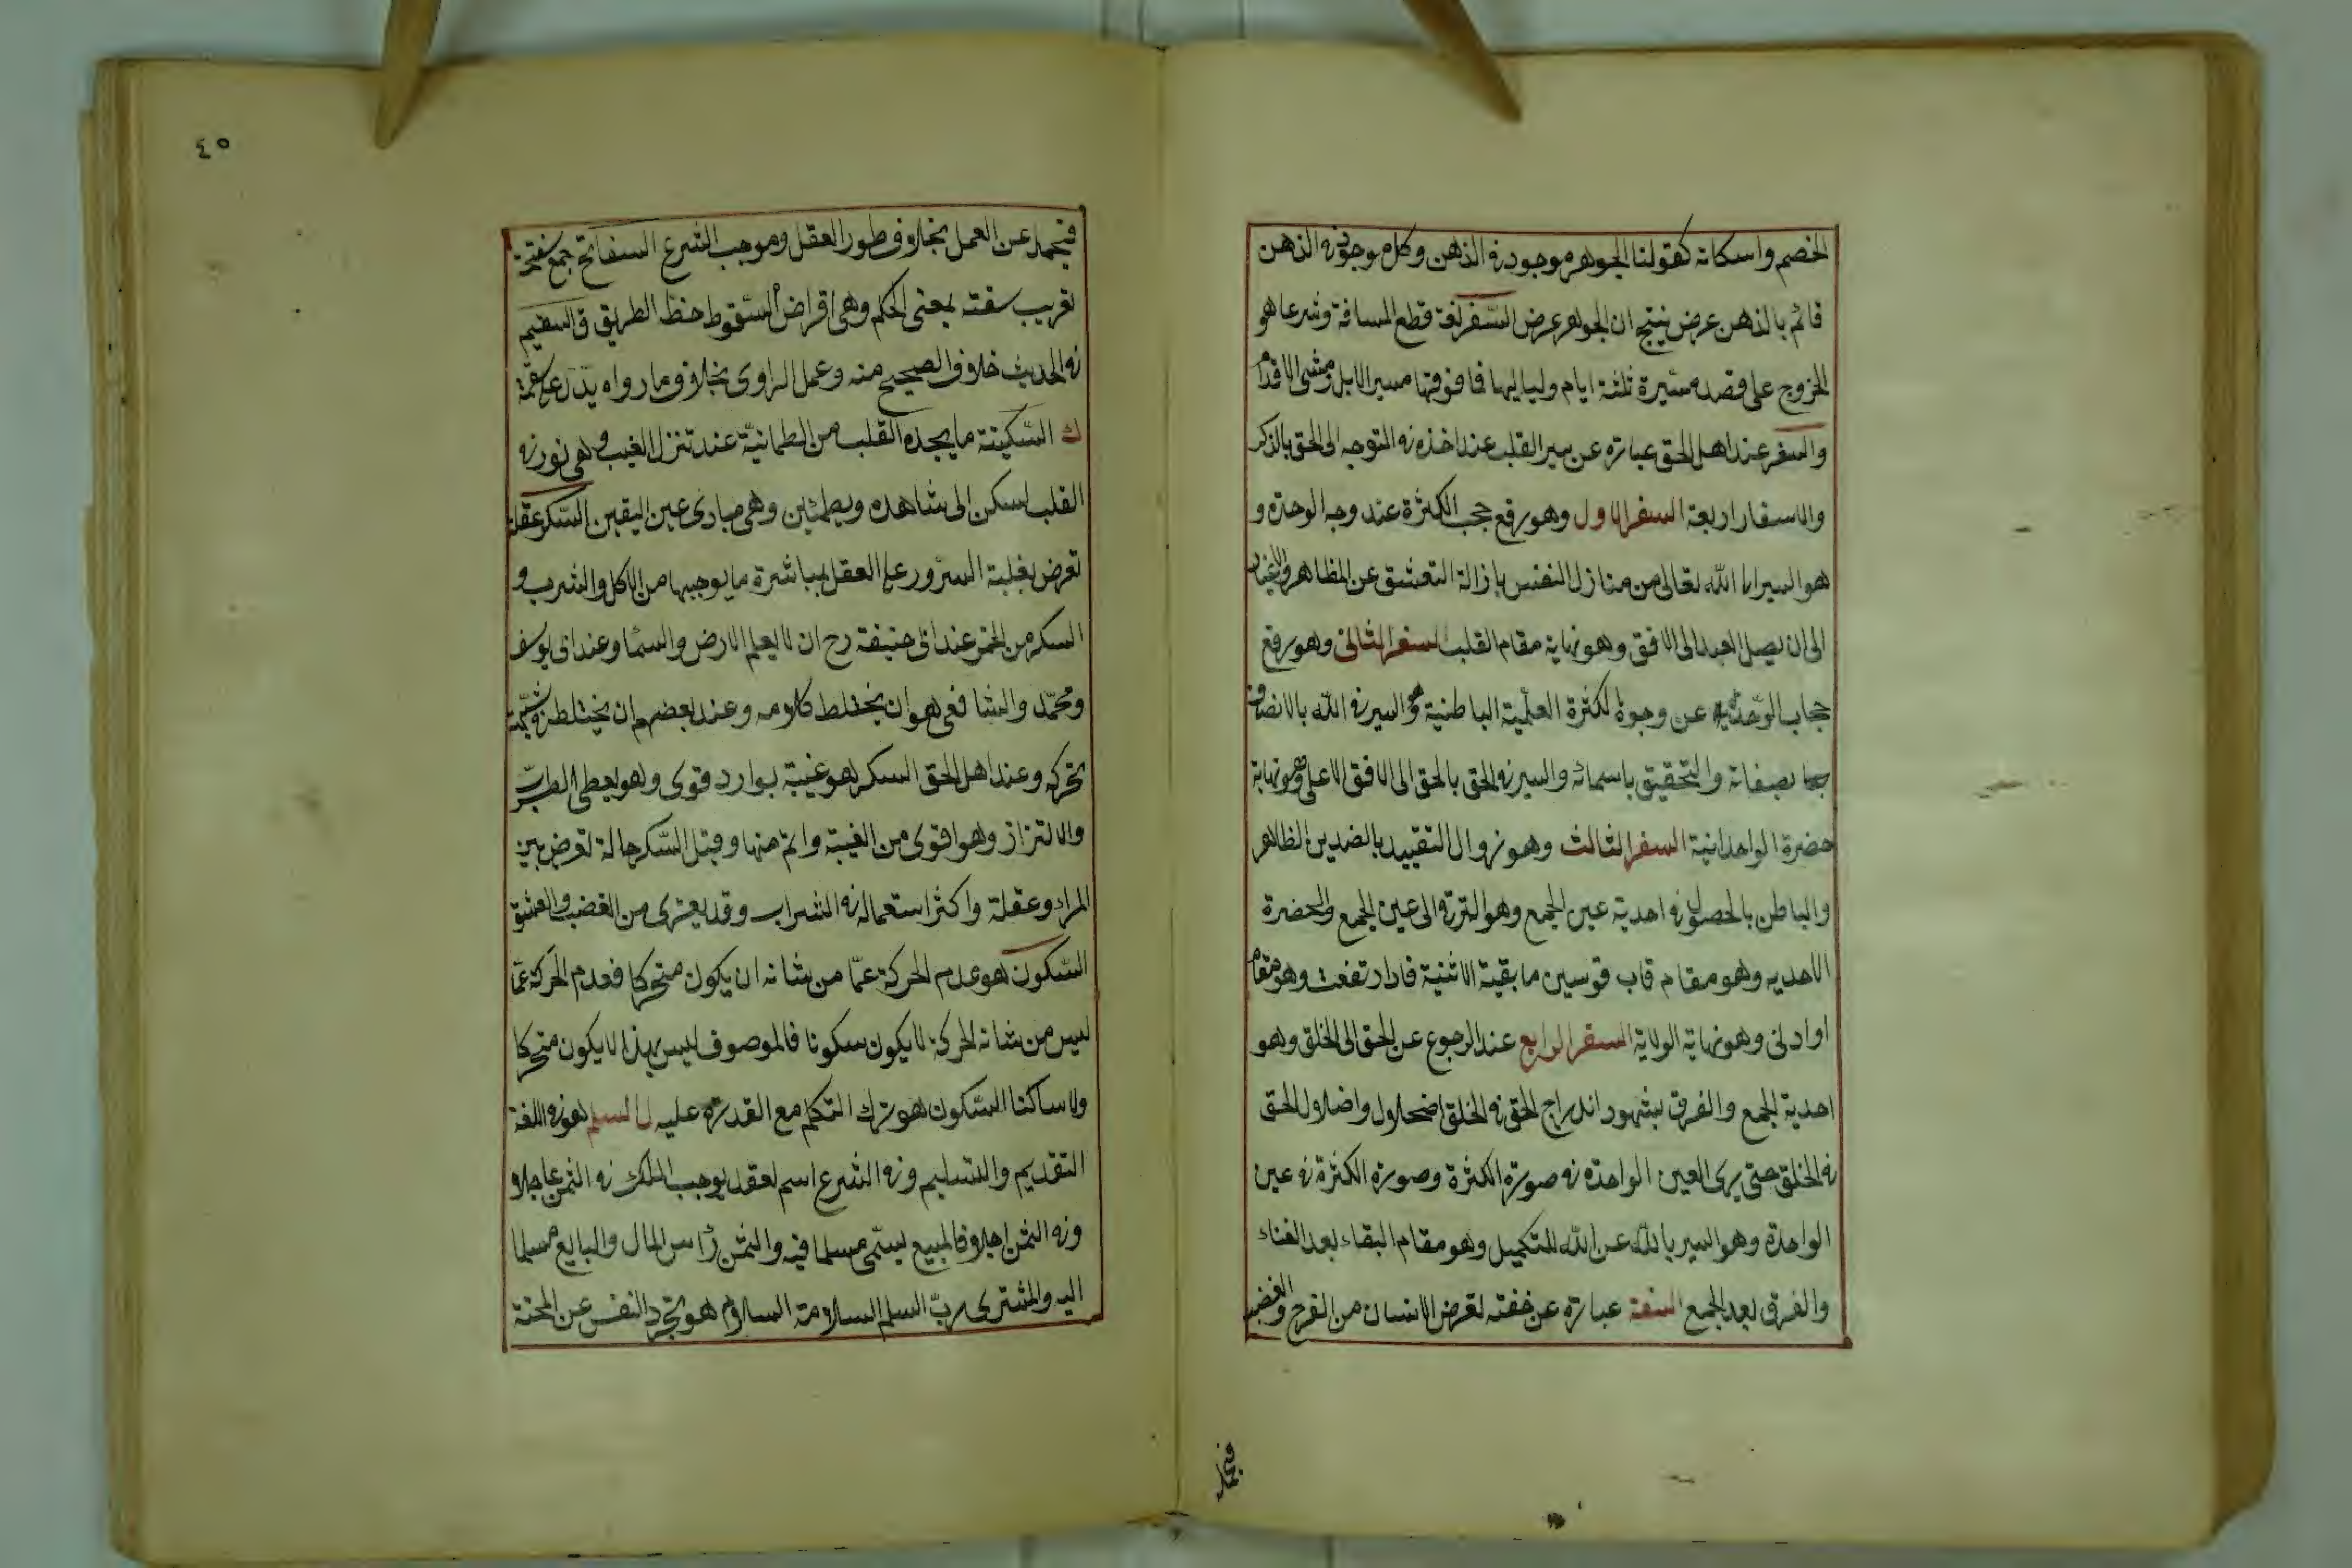 الخصم واسكاته كقولنا الجوهر موجود فى الذهن وكل موجود فى الذهن
قائم بالذهن عرض ينتج ان الجوهر عرض السفر لغة قطع المسافة وشرعا هو
الخروج على قصد مسيرة ثلثة ايام ولياليها فما فوقها مسير الابل ومشى الاقدام
والسفر عند اهل الحق عبارة عن سير القلب عند اخذه فى التوجه الى الحق بالذكر
والاسفار اربعة السفر الاول وهو رفع حجب الكثرة عند وجه الوحدة و
هو السير الى الله تعالى من منازل النفس بازالة التعشق عن المظاهر والاغيار
الى ان يصل العبد الى الافق وهو نهاية مقام القلب السفر الثانى وهو رفع
حجاب الوحدة عن وجوه الكثرة العلمية الباطنية وهو السير فى الله بالاتصاف
بصفاته والتحقيق باسمائه والسير فى الحق بالحق الى الافق الاعلى وهو نهاية
حضرة الواحدانية السفر الثالث وهو زوال التقييد بالضدين الظاهر
والباطن بالحصول فى احدية عين الجمع وهو الترقى الى عين الجمع والحضرة
الاحديه وهو مقام قاب قوسين ما بقية الاثنية فاذا ارتفعت وهو مقام
او ادنى وهو نهاية الولاية السفر الرابع عند الرجوع عن الحق الى الخلق وهو
احدية الجمع والفرق بشهود اندراج الحق فى الخلق اضمحلال واضلال الحق
فى الخلق حتى يرى العين الواحدة فى صورة الكثرة وصورة الكثرة فى عين
الواحدة وهو السير بالله عن الله للتكميل وهو مقام البقاء بعد الفناء
والفرق بعد الجمع السفة عبارة عن خفته تعرض الانسان من الفرح والغضب
فيحمل
٤٥
فيحمل عن العمل بخلاف طور العقل وموجب الشرع السفاتج جمع سفتجة
تعريب سفته بمعنى الحكم وهى اقراض لسقوط خطر الطريق ق السقيم
فى الحديث خلاف الصحيح منه وعمل الراوى بخلاف ما رواه يدل على سقمه
ك السكينة ما يجده القلب من الطمانية عند تنزل الغيب وهى نور فى
القلب لسكن الى شاهده ويطمئين وهى مبادى عين اليقين السكر غفلة
تعرض بغلبة السرور على العقل بمباشرة ما يوجبها من الاكل والشرب و
السكر من الخمر عند ابى حنيفة رح ان لا يعلم الارض والسما وعند ابى يوسف
ومحمد والشافعى هو ان يختلط كلامه وعند بعضهم ان يختلط فى مشيته
تحركه وعند اهل الحق السكر هو غيبة بوارد قوى وهو يعطى الطرب
والالتزاز وهو اقوى من الغيبة واتم منها وقيل السكر حالة تعرض بين
المراد وعقلة واكثر استعماله فى الشراب وقد يعترى من الغضب والعشق
السكون هو عدم الحركة عما من شانه ان يكون متحركا فعدم الحركة عما
ليس من شانه الحركة لا يكون سكونا فالموصوف ليس بهذا لا يكون متحركا
ولا ساكنا السكون هو ترك التكلم مع القدرة عليه ل السلم هو فى اللغة
التقديم والتسليم وفى الشرع اسم لعقد يوجب الملك فى الثمن عاجلا
وفى الثمن اجلا فالمبيع يسمى مسلما فيه والثمن رأس المال والبايع مسلما
اليه والمشترى رب السلم السلامة السلام هو تجرد النفس عن المحنة